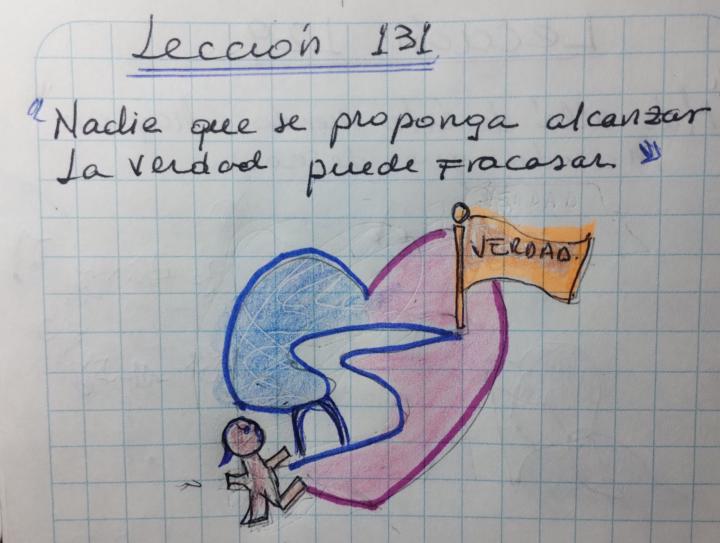 Lección 131
"Nadie que se proponga alcanzar
La verdad puede Fracasar"
VERDAD.